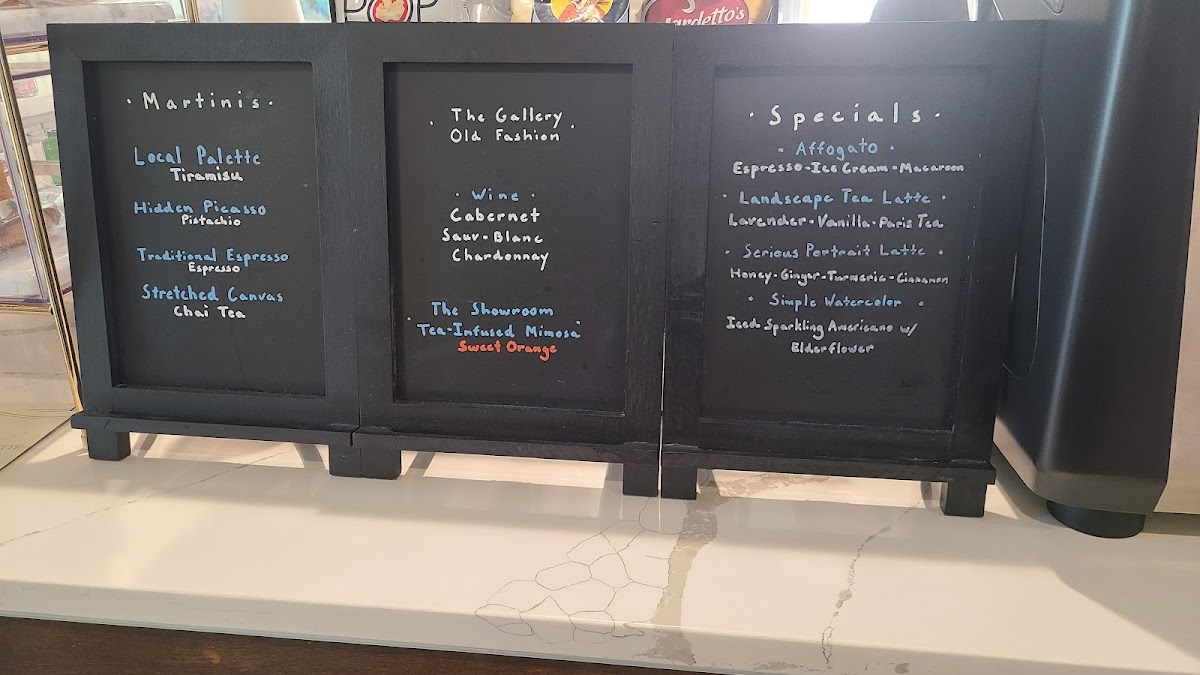 POP
Mardetto's
· Martinis ·
Local Palette
Tiramisu
Hidden Picasso
Pistachio
Traditional Espresso
Espresso
Stretched Canvas
Chai Tea
· The Gallery
Old Fashion ·
· Wine ·
Cabernet
Sauv-Blanc
Chardonnay
The Showroom
· Tea-Infused Mimosa ·
Sweet Orange
· Specials ·
· Affogato ·
Espresso-Ice Cream-Macaroon
· Landscape Tea Latte ·
Lavender-Vanilla-Paris Tea
· Serious Portrait Latte ·
Honey-Ginger-Turmeric-Cinnamon
· Simple Watercolor ·
Iced Sparkling Americano w/
Elderflower